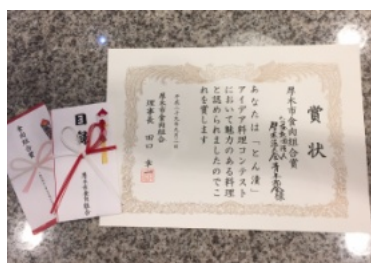 賞状
厚木市食肉組合賞
あなたは「とん漬」
アイデア料理コンテスト
において魅力のある料理
と認められましたのでこ
れを賞します
厚木市食肉組合
理事長 田口
目録
厚木市食肉組合
食肉組合賞